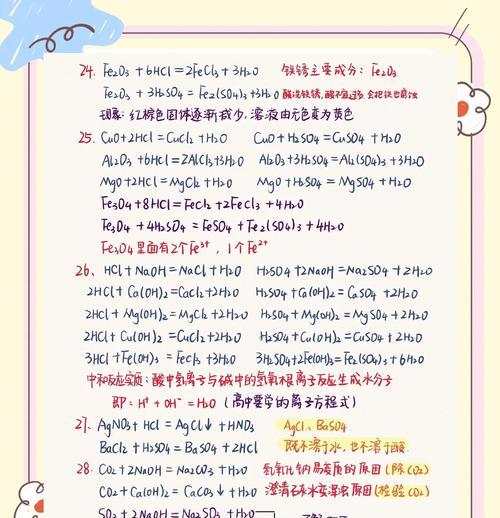 24. Fe₂O₃ + 6HCl = 2FeCl₃ + 3H₂O 铁锈主要成分: Fe₂O₃
Fe₂O₃ + 3H₂SO₄ = Fe₂(SO₄)₃ + 3H₂O 酸洗铁锈, 酸不宜过多, 会把铁也腐蚀
现象: 红棕色固体逐渐减少, 溶液由无色变为黄色
25. CuO + 2HCl = CuCl₂ + H₂O CuO + H₂SO₄ = CuSO₄ + H₂O
Al₂O₃ + 6HCl = 2AlCl₃ + 3H₂O Al₂O₃ + 3H₂SO₄ = Al₂(SO₄)₃ + 3H₂O
MgO + 2HCl = MgCl₂ + H₂O MgO + H₂SO₄ = MgSO₄ + H₂O
Fe₃O₄ + 8HCl = FeCl₂ + 2FeCl₃ + 4H₂O
Fe₃O₄ + 4H₂SO₄ = FeSO₄ + Fe₂(SO₄)₃ + 4H₂O
Fe₃O₄ 里面有2个Fe³⁺, 1个Fe²⁺
26、 HCl + NaOH = NaCl + H₂O H₂SO₄ + 2NaOH = Na₂SO₄ + 2H₂O
2HCl + Ca(OH)₂ = CaCl₂ + 2H₂O H₂SO₄ + Ca(OH)₂ = CaSO₄ + 2H₂O
2HCl + Mg(OH)₂ = MgCl₂ + 2H₂O H₂SO₄ + Mg(OH)₂ = MgSO₄ + 2H₂O
2HCl + Cu(OH)₂ = CuCl₂ + 2H₂O H₂SO₄ + Cu(OH)₂ = CuSO₄ + 2H₂O
3HCl + Fe(OH)₃ = FeCl₃ + 3H₂O 3H₂SO₄ + 2Fe(OH)₃ = Fe₂(SO₄)₃ + 6H₂O
中和反应实质: 酸中氢离子与碱中的氢氧根离子反应生成水分子
即: H⁺ + OH⁻ = H₂O (高中要学的离子方程式)
27、 AgNO₃ + HCl = AgCl↓ + HNO₃ AgCl、BaSO₄
BaCl₂ + H₂SO₄ = BaSO₄ + 2HCl 既不溶于水, 也不溶于酸
28、 CO₂ + 2NaOH = Na₂CO₃ + H₂O 氢氧化钠易变质的原因 (除CO₂)
CO₂ + Ca(OH)₂ = CaCO₃↓ + H₂O 澄清石灰水变浑浊原因 (检验CO₂)
SO₂ + 2NaOH = Na₂SO₃ + H₂O